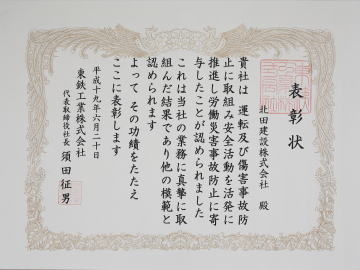 表彰状
北田建設株式会社 殿
貴社は 運転及び傷害事故防
止に取組み安全活動を活発に
推進し労働災害事故防止に寄
与したことが認められました
これは当社の業務に真摯に取
組んだ結果であり他の模範と
認められます
よって その功績をたたえ
ここに表彰します
平成十九年六月二十日
東鉄工業株式会社
代表取締役社長 須田征男